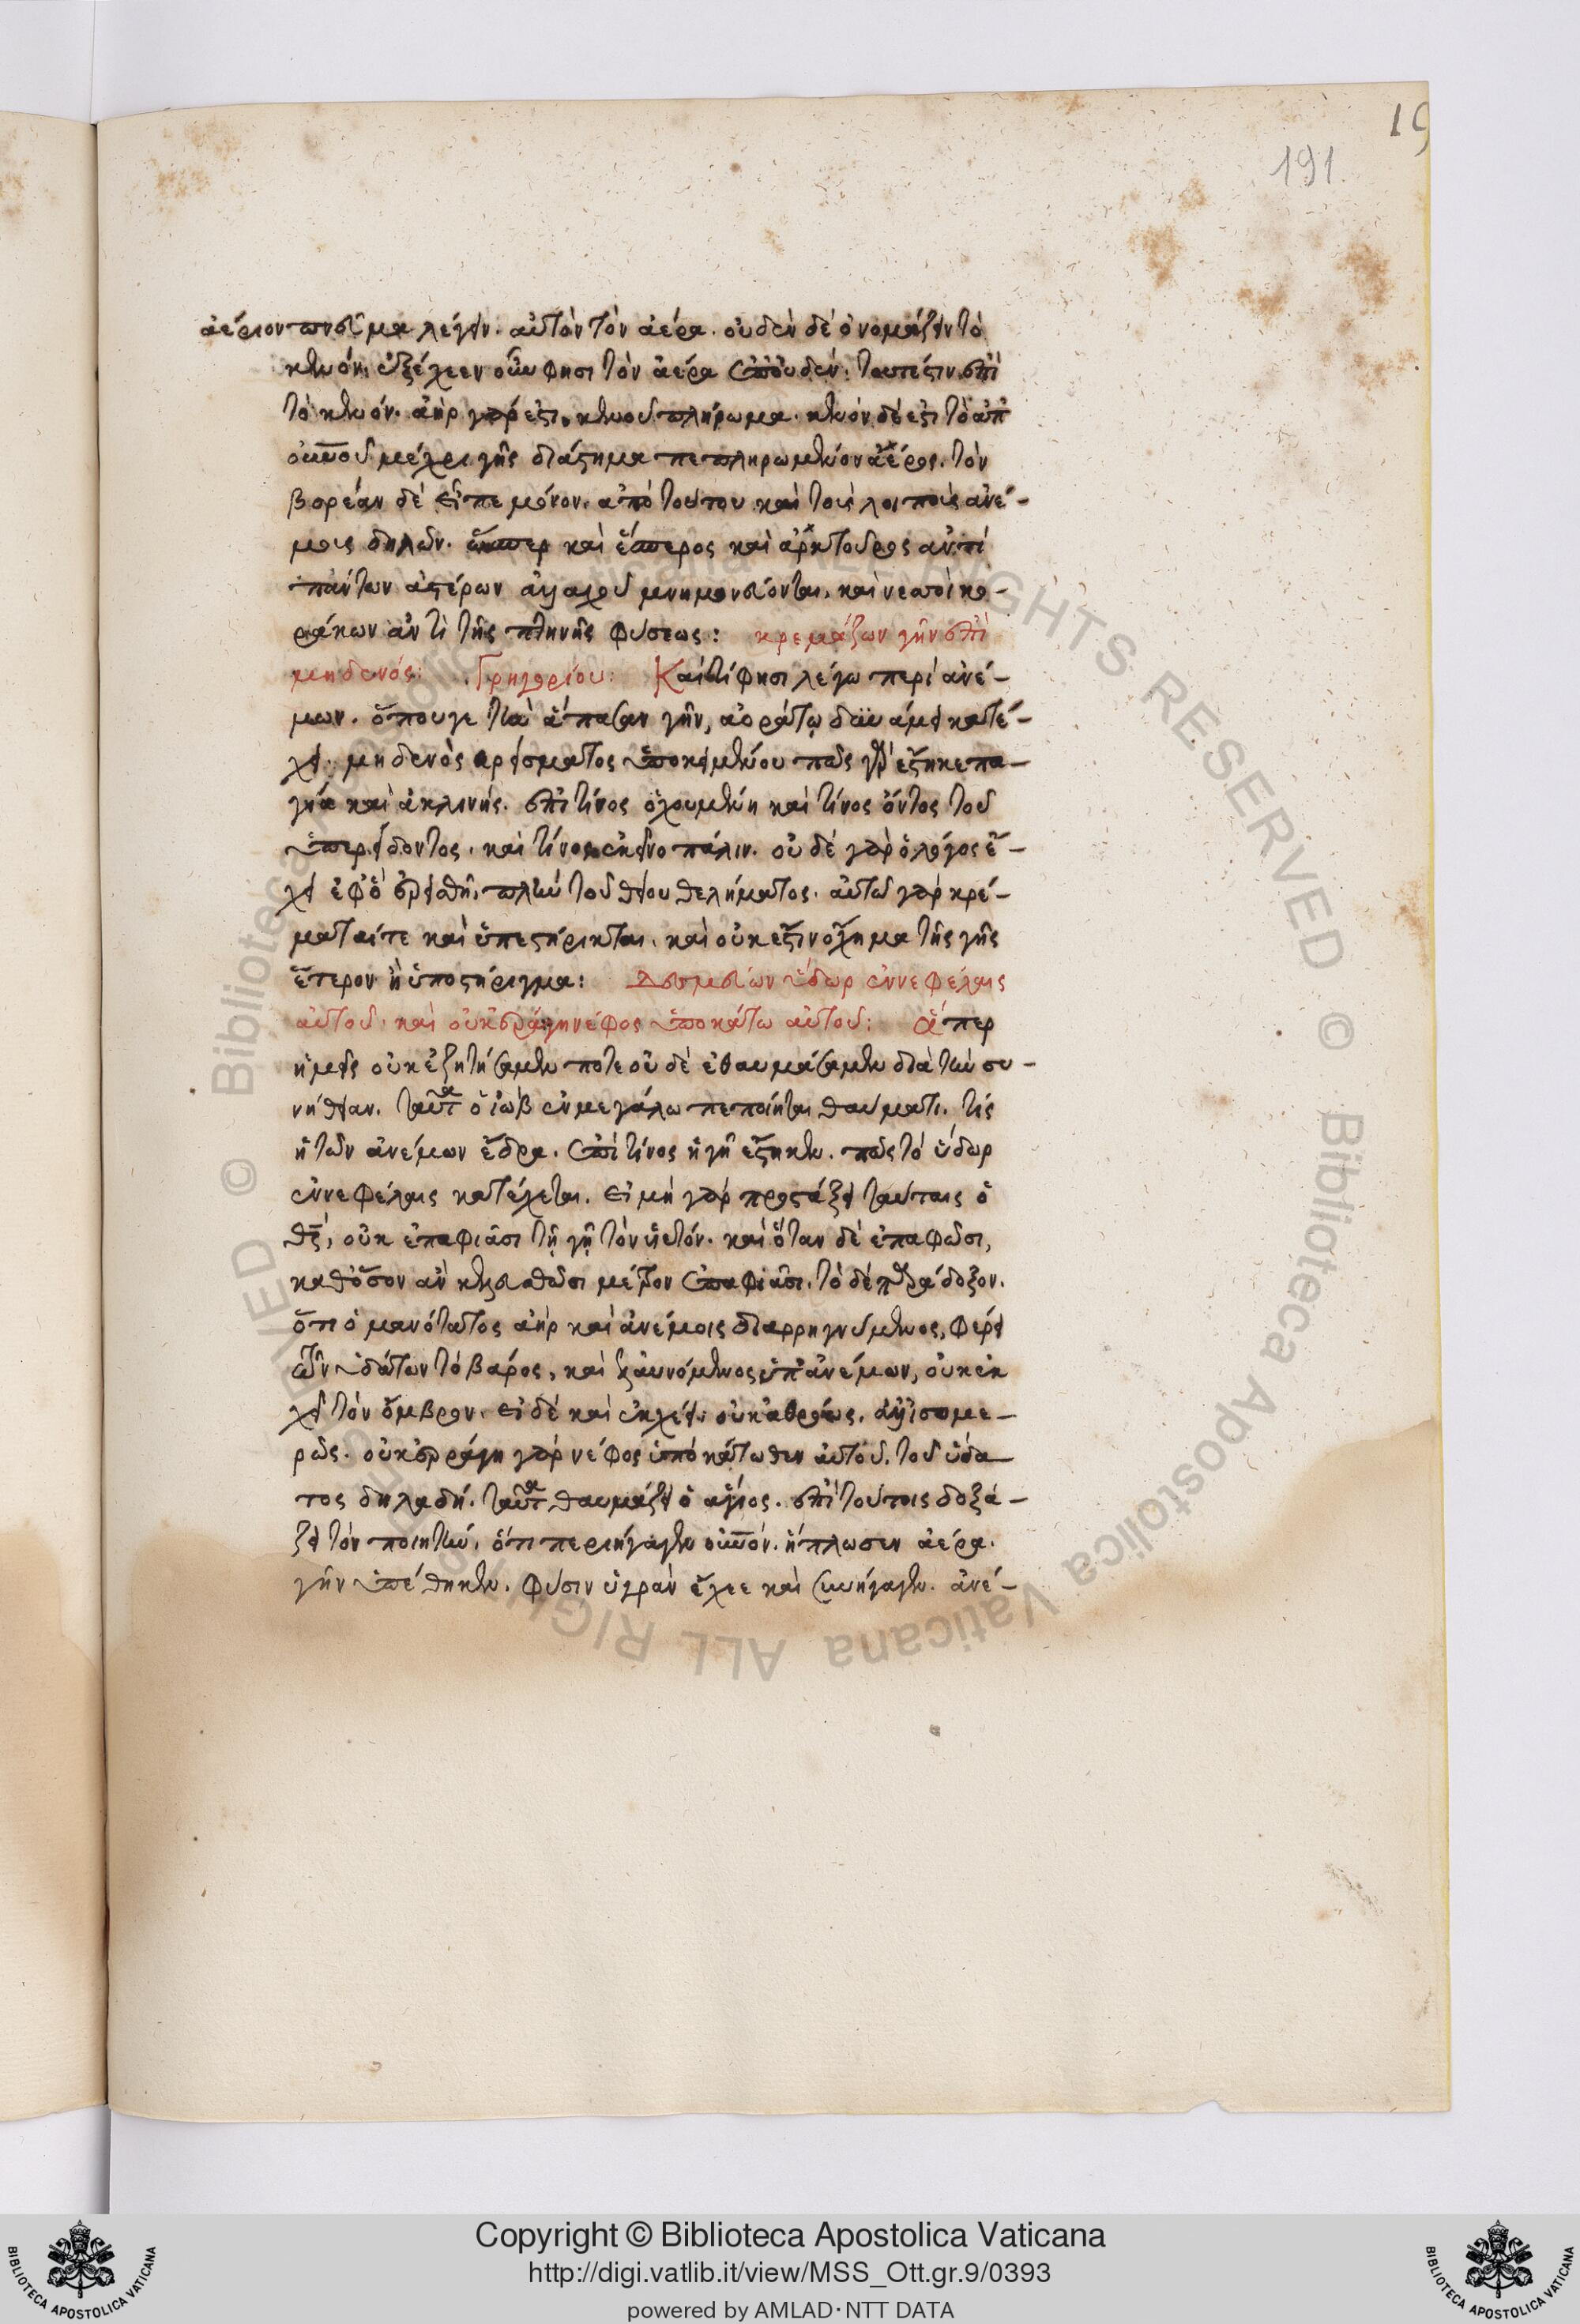 19
191
ἀέριον πνεῦμα λέγειν. αὐτὸν τὸν ἀέρα. οὐδὲν δὲ ὀνομάζειν τὸ
κενόν. ἐξέχεεν οὖν φησι τὸν ἀέρα ἐπ' οὐδέν. τουτέστιν ἐπὶ
τὸ κενόν. ἀὴρ γάρ ἐστι κενοῦ πλήρωμα. κενὸν δέ ἐστι τὸ ἀπ'
οὐνοῦ μέχρι γῆς διάστημα πεπληρωμένον ἀέρος. τὸν
βορέαν δὲ εἶπε μόνον. ἀπὸ τούτου καὶ τοὺς λοιποὺς ἀνέ-
μους δηλῶν. ὥσπερ καὶ ἕσπερος καὶ ἀρκτοῦρος ἀντὶ
πάντων ἀστέρων ἀλλαχοῦ μνημονεύονται. καὶ νεοσσοὶ κο-
ράκων ἀντὶ τῆς πτηνῆς φύσεως: κρεμάζων γῆν ἐπὶ
μηδενός: Γρηγορίου: Καὶ τί φησι λέγω περὶ ἀνέ-
μων. ὅπουγε τὴν ἅπασαν γῆν, ἀοράτῳ δυνάμει κατέ-
χει. μηδενὸς ἐρείσματος ὑποκειμένου πῶς γὰρ ἕστηκε πα-
γία καὶ ἀκλινής. ἐπὶ τίνος ὀχουμένη καὶ τίνος ὄντος τοῦ
ὑπερείδοντος. καὶ τίνος ἐκεῖνο πάλιν. οὐδὲ γὰρ ὁ λόγος ἔ-
χει ἐφ' ὃ ἐρεισθῇ, πλὴν τοῦ θείου θελήματος. αὐτῶ γὰρ κρέ-
ματαί τε καὶ ὑπεστήρικται. καὶ οὐκ ἔστιν ὄχημα τῆς γῆς
ἕτερον ἢ ὑποστήριγμα: Δεσμεύων ὕδωρ ἐν νεφέλαις
αὐτοῦ. καὶ οὐκ ἐρράγη νέφος ὑποκάτω αὐτοῦ: ἅπερ
ἡμεῖς οὐκ ἐζητήσαμεν ποτε οὐδὲ ἐθαυμάσαμεν διὰ τὴν συ-
νήθειαν. ταῦτα ὁ ἰὼβ ἐν μεγάλω πεποίηται θαύματι. τίς
ἡ τῶν ἀνέμων ἕδρα. ἐπὶ τίνος ἡ γῆ ἕστηκεν. πῶς τὸ ὕδωρ
ἐν νεφέλαις κατέχεται. εἰ μὴ γὰρ προστάξει ταύταις ὁ
θς, οὐκ ἐπαφιᾶσι τῇ γῇ τὸν ὑετόν. καὶ ὅταν δὲ ἐπαφῶσι,
καθόσον ἂν κελευσθῶσι μέτρον ἐπαφιᾶσι. τὸ δὲ παράδοξον.
ὅτι ὁ μανότατος ἀὴρ καὶ ἀνέμοις διαρρηγνύμενος, φέρει
τῶν ὑδάτων τὸ βάρος, καὶ ἐλαυνόμενος ὑπ' ἀνέμων, οὐκ ἐκ
χεῖ τὸν ὄμβρον. εἰ δὲ καὶ ἐκχέει. οὐκ ἀθρόως. ἀλλ' ἰσομε-
ρῶς. οὐκ ἐρράγη γὰρ νέφος ὑποκάτωθεν αὐτοῦ. τοῦ ὕδα-
τος δηλαδή. ταῦτα θαυμάζει ὁ ἅγιος. ἐπὶ τούτοις δοξά-
ζει τὸν ποιητήν, ὅτι περιήγαγεν οὐνόν. ἥπλωσεν ἀέρα.
γῆν ὑπέθηκεν. φύσιν ὑγρὰν ἔχεε καὶ συνήγαγεν. ἀνέ-
Copyright © Biblioteca Apostolica Vaticana
http://digi.vatlib.it/view/MSS_Ott.gr.9/0393
powered by AMLAD · NTT DATA
BIBLIOTECA APOSTOLICA VATICANA
BIBLIOTECA APOSTOLICA VATICANA